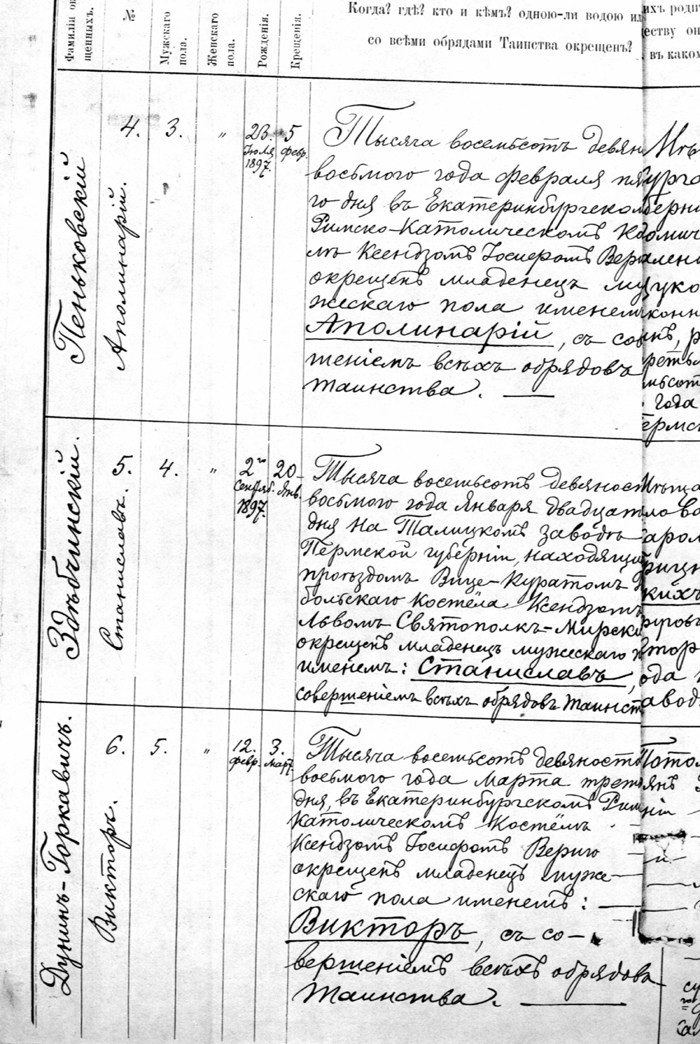 Фамиліи
щенныхъ.
№
Мужскаго
пола.
Женскаго
пола.
Рожденія.
Крещенія.
Когда? гдѣ? кто и кѣмъ? одною-ли водою
со всѣми обрядами Таинства окрещенъ?
ихъ
еству
въ
Пеньковскій
4.
Аполинарій.
3.
"
23.
Іюля
1897.
5
февр.
Тысяча восемьсотъ девян
восьмого года февраля пя
го дня въ Екатеринбургско
Римско-Католическомъ
мъ Ксендзомъ Іосифомъ Вер
окрещенъ младенецъ му
жескаго пола именем
Аполинарій, съ со
шеніемъ всѣхъ обрядовъ
Таинства. —
года
Здѣбчинскій.
5.
Станиславъ.
4.
"
2го
Сентяб.
1897.
20
Янв.
Тысяча восемьсотъ девяност
восьмого года Января двадцат
дня на Талицкомъ заводѣ
Пермской губерніи, находящи
проѣздомъ Вице-Куратомъ
больскаго Костёла Ксендзомъ
Львомъ Святополкъ-Мирски
окрещенъ младенецъ мужескаго
именемъ: Станиславъ,
совершеніемъ всѣхъ обрядовъ Таинст
Дунинъ-Горкавичъ.
6.
Викторъ.
5.
"
12.
февр.
3.
Март.
Тысяча восемьсотъ девяносто
восьмого года Марта треть
дня, въ Екатеринбургскомъ Рим
Католическомъ Костёлѣ
Ксендзомъ Іосифомъ Верно
окрещенъ младенецъ муже-
скаго пола именемъ: —
Викторъ, съ со-
вершеніемъ всѣхъ обрядовъ
Таинства. —